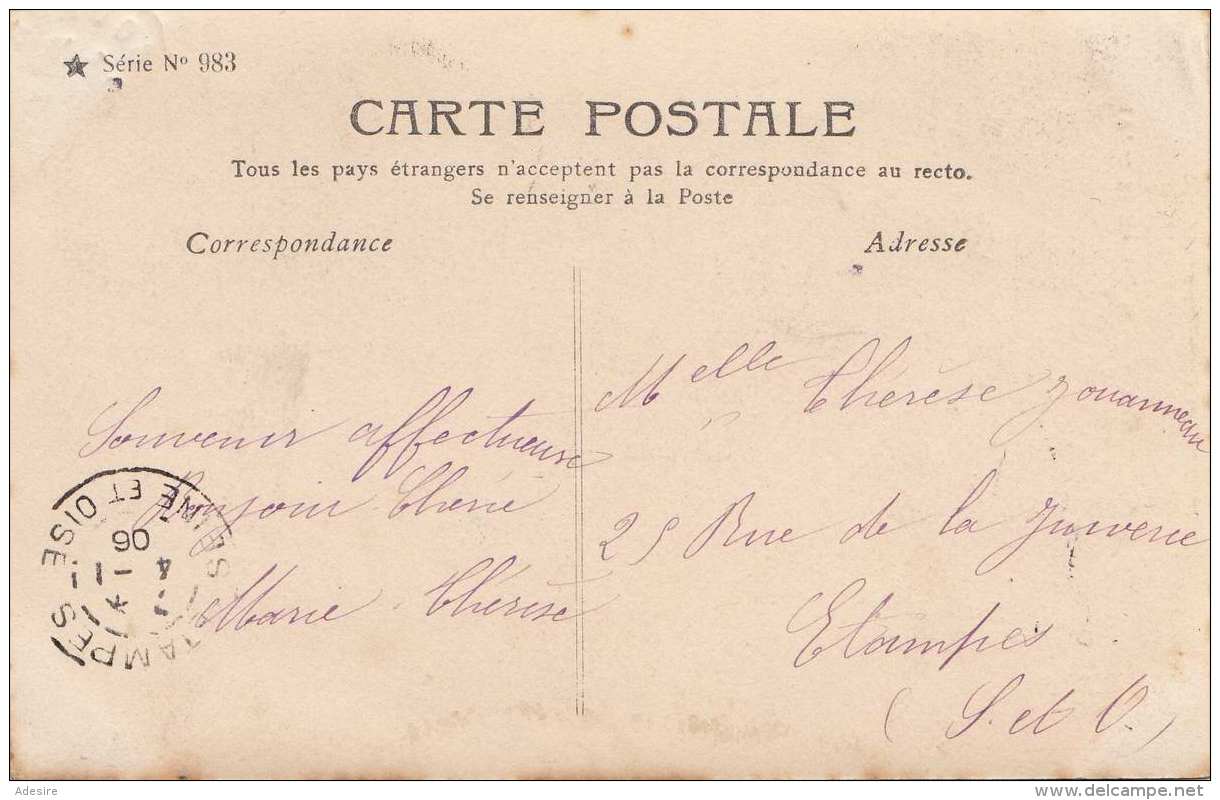 ★ Série Nº 983
CARTE POSTALE
Tous les pays étrangers n'acceptent pas la correspondance au recto.
Se renseigner à la Poste
Correspondance
Adresse
Souvenir affectueuse
Bonsoir Chérie
Marie Thérèse
Melle Thérèse Jouanneau
25 Rue de la Juiverie
Etampes
(S. et O.)
ETAMPES
SEINE ET OISE
06
Adesire
delcampe.net